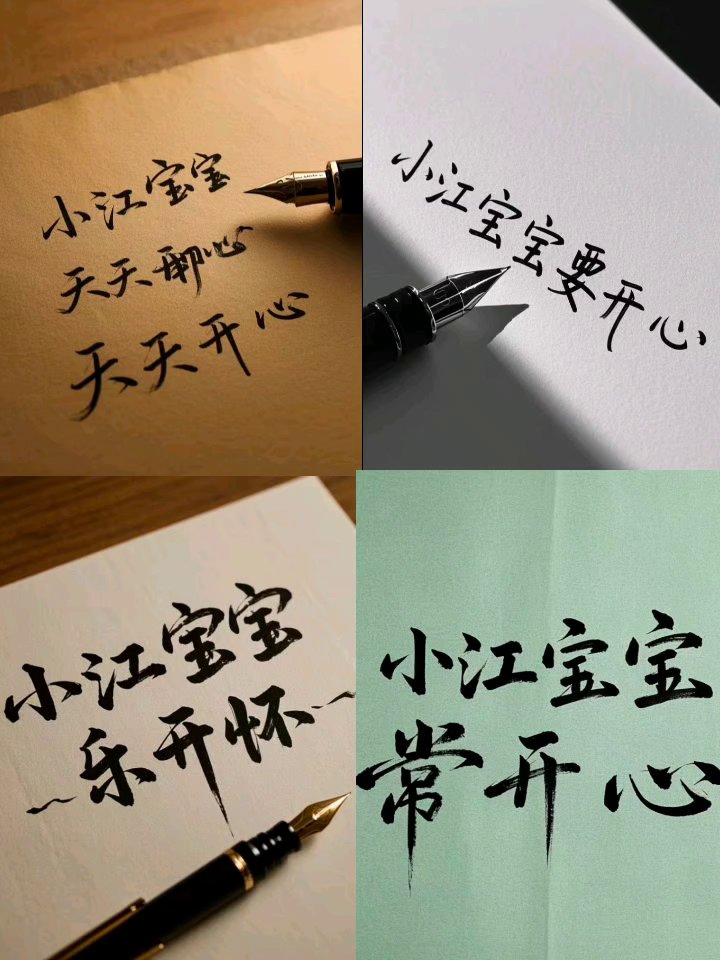 小江宝宝
天天心
天天开心
小江宝宝要开心
小江宝宝
乐开怀
小江宝宝
常开心